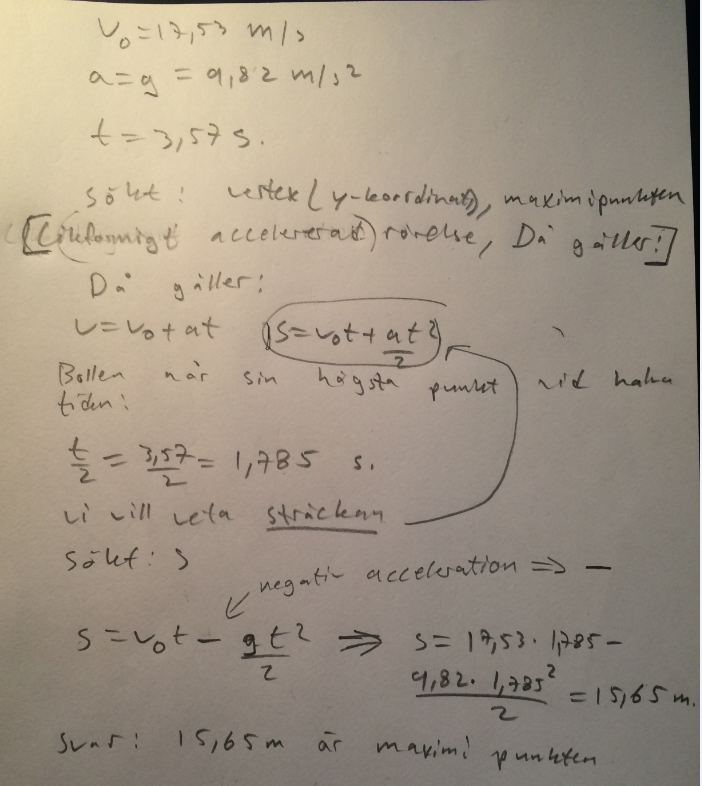 v₀ = 17,53 m/s
a = g = 9,82 m/s²
t = 3,57 s.
Sökt: vertex (y-koordinat), maximipunkten
[(Likformigt accelererad) rörelse, Då gäller:]
Då gäller:
v = v₀ + at (s = v₀t + at²/2)
Bollen når sin högsta punkt vid halva
tiden:
t/2 = 3,57/2 = 1,785 s.
vi vill veta sträckan
Sökt: s
negativ acceleration ⇒ −
s = v₀t − gt²/2 ⇒ s = 17,53 · 1,785 −
9,82 · 1,785²/2 = 15,65 m.
Svar: 15,65 m är maximi punkten